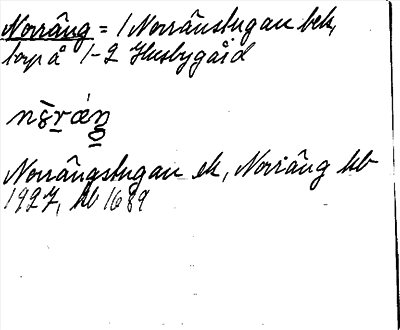 Norräng = 1 Norrängstugan bek,
torp å 1-2 Husbygård
Norrängstugan ek, Norräng hb
1927, hb 1689